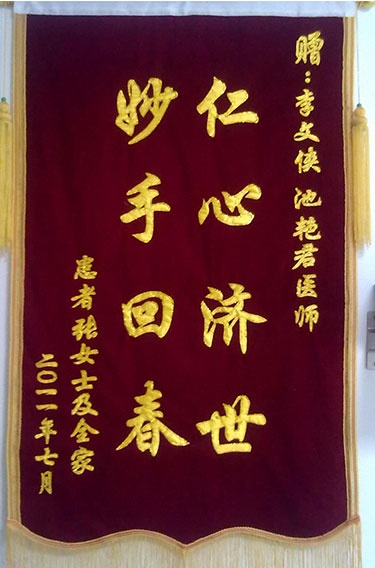 赠：李文侠 池艳君医师
仁心济世
妙手回春
患者张女士及全家
二〇一一年七月